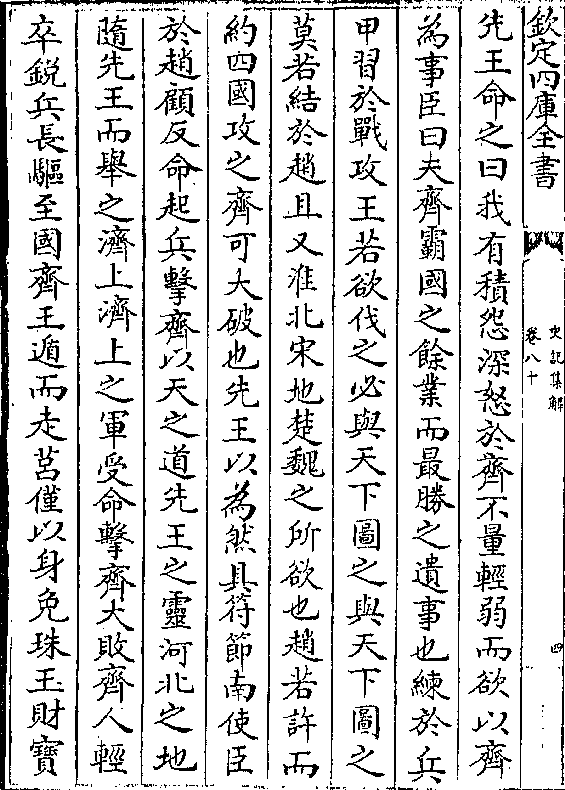 欽定四庫全書
史記集解
卷八十
四
先王命之曰我有積怨深怒於齊不量輕弱而欲以齊
為事臣曰夫齊霸國之餘業而最勝之遺事也練於兵
甲習於戰攻王若欲伐之必與天下圖之與天下圖之
莫若結於趙且又淮北宋地楚魏之所欲也趙若許而
約四國攻之齊可大破也先王以為然具符節南使臣
於趙顧反命起兵擊齊以天之道先王之靈河北之地
隨先王而舉之濟上濟上之軍受命擊齊大敗齊人輕
卒銳兵長驅至國齊王遁而走莒僅以身免珠玉財寶